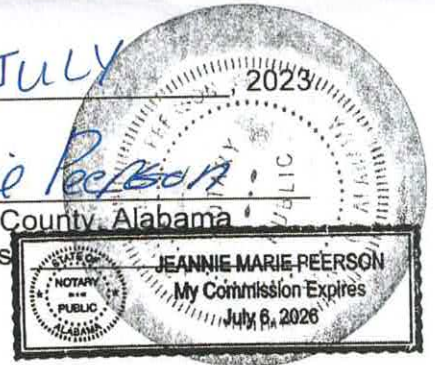 JULY, 2023
e Peerson
County, Alabama
s
STATE OF
NOTARY
PUBLIC
ALABAMA
JEANNIE MARIE PEERSON
My Commission Expires
July 6, 2026
NOTARY
PUBLIC